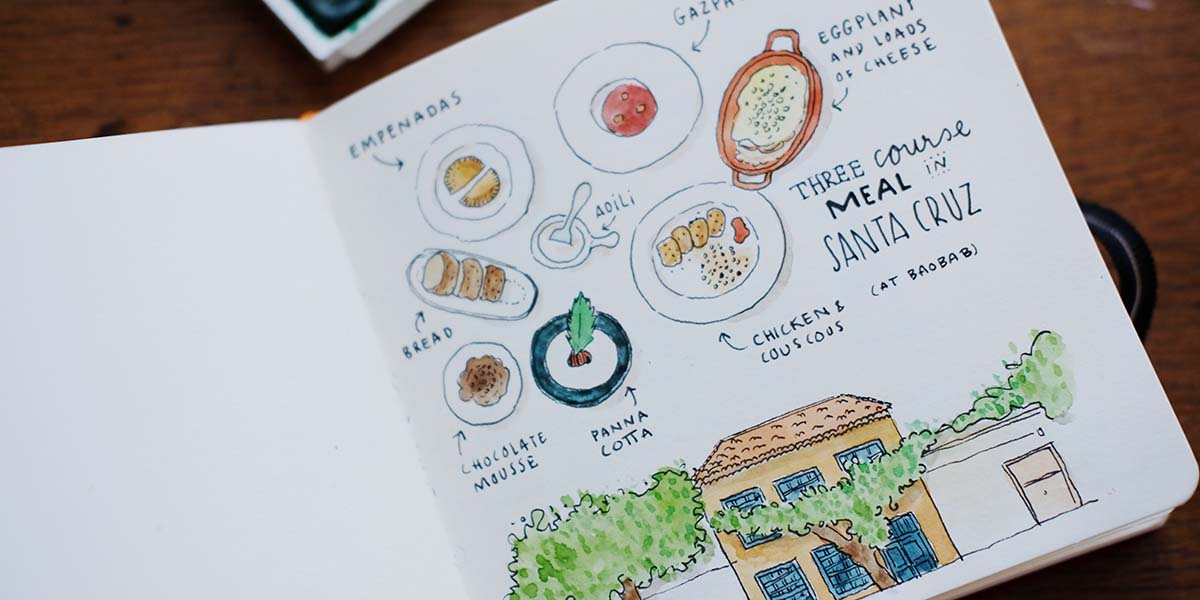 GAZPA
EGGPLANT
AND LOADS
OF CHEESE
EMPENADAS
THREE course
MEAL IN
SANTA CRUZ
(AT BAOBAB)
AOILI
BREAD
CHICKEN &
COUSCOUS
PANNA
COTTA
CHOCOLATE
MOUSSE